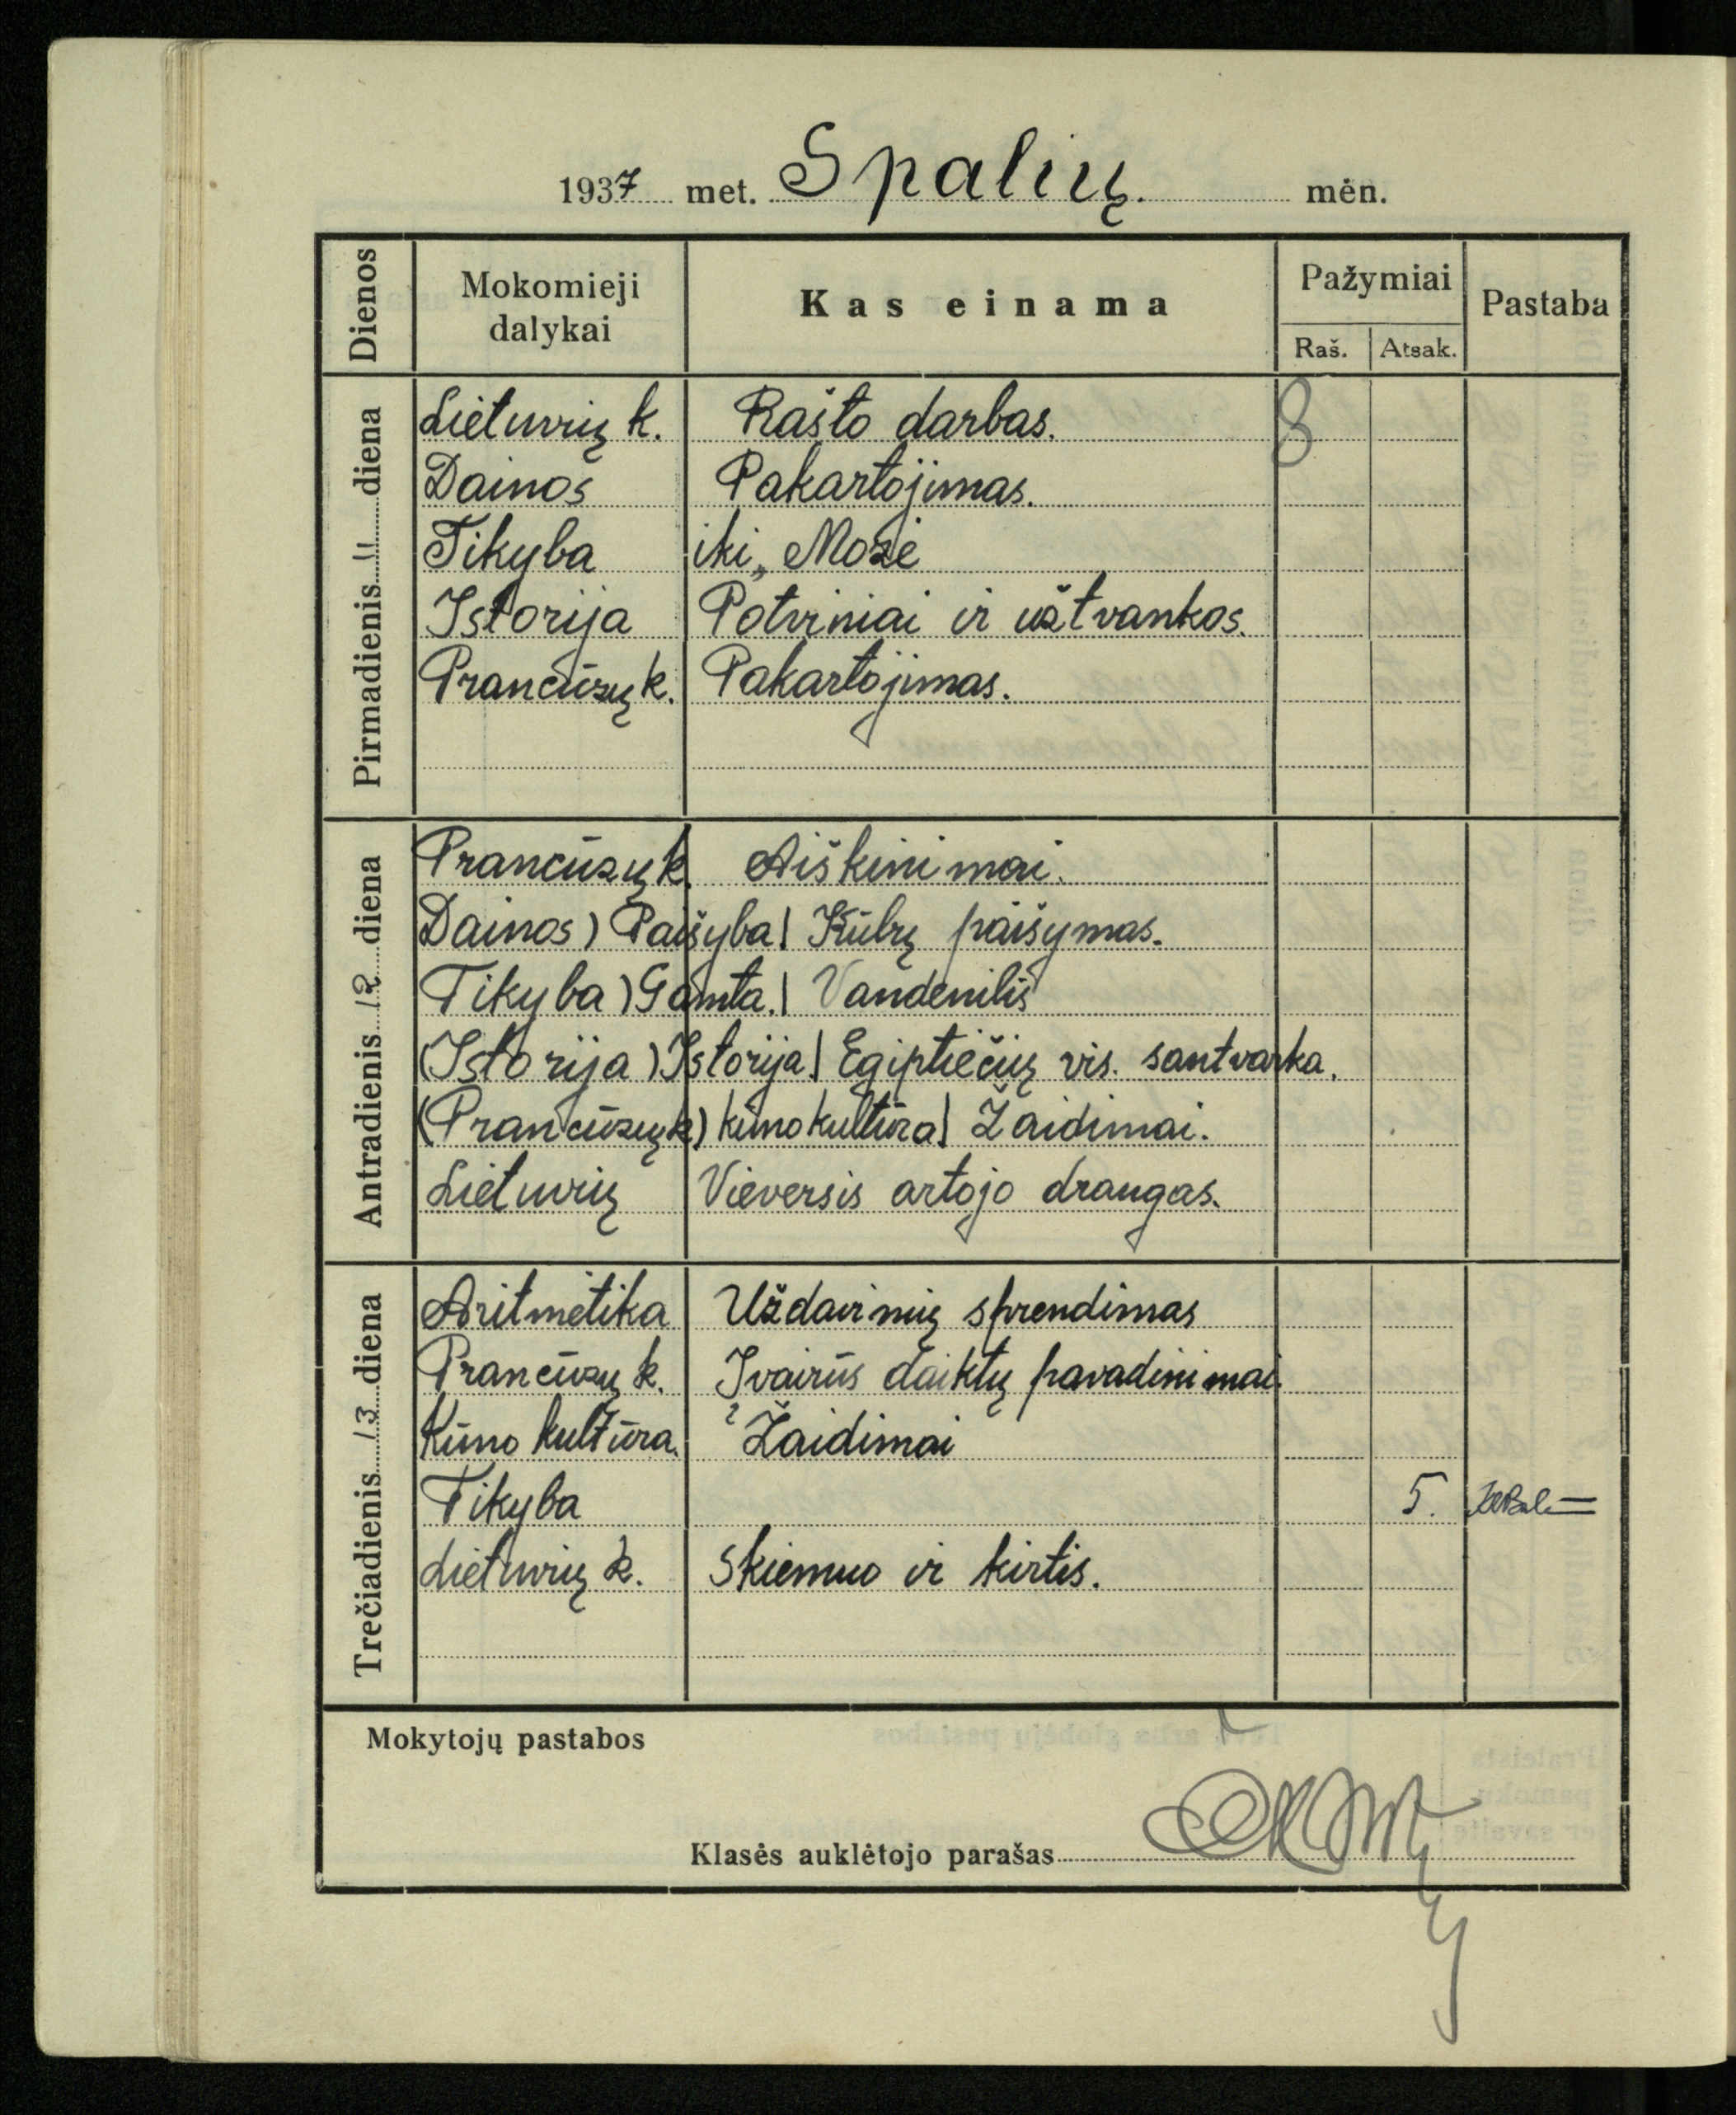 1937 met. Spalių. mėn.
Dienos Mokomieji dalykai Kas einama Pažymiai Pastaba
Raš. Atsak.
Pirmadienis 11 diena
Lietuvių k. Rašto darbas. 8
Dainos Pakartojimas.
Tikyba iki „ Mozė
Istorija Potviniai ir užtvankos.
Prancūzų k. Pakartojimas.
Antradienis 12 diena
Prancūzų k. Aiškinimai.
Dainos) Paišyba| Kūbų paišymas.
Tikyba) Gamta.| Vandenilis
(Istorija) Istorija| Egiptiečių vis. santvarka.
(Prancūzų k) kūno kultūra| Žaidimai.
Lietuvių Vieversis artojo draugas.
Trečiadienis 13 diena
Aritmetika Uždavinių sprendimas
Prancūzų k. Įvairūs daiktų pavadinimai.
Kūno kultūra. Žaidimai
Tikyba 5.
Lietuvių k. Skiemuo ir kirtis.
Mokytojų pastabos
Klasės auklėtojo parašas